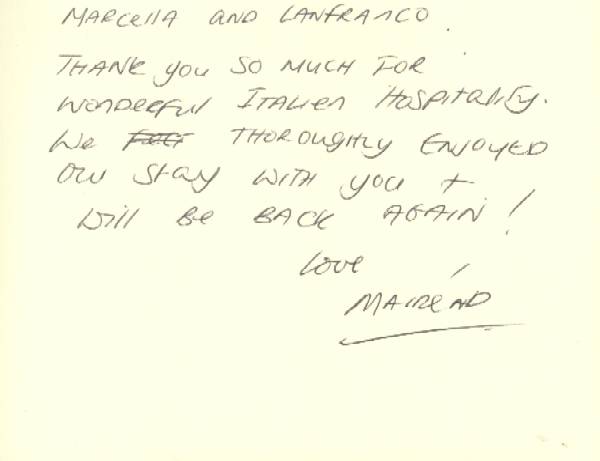 MARCELLA AND LANFRANCO.
THANK you SO MUCH FOR
WONDERFUL ITALIEN HOSPITALITY.
WE THOROUGHLY ENJOYED
OUR STAY WITH YOU +
WILL BE BACK AGAIN!
Love
MAIRÉAD